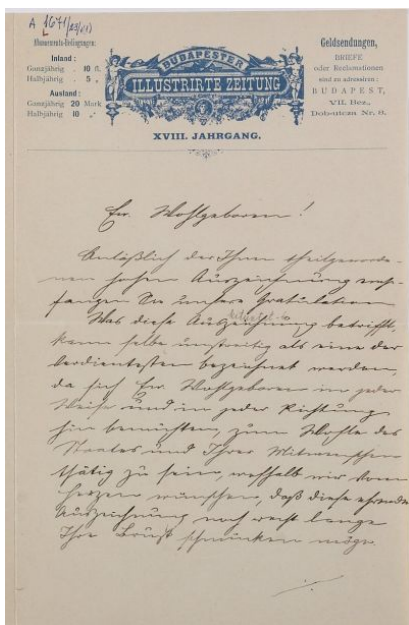 A 1671/(23/41)
Abonnements-Bedingungen:
Inland:
Ganzjährig . 10 fl.
Halbjährig . 5 „
Ausland:
Ganzjährig 20 Mark
Halbjährig 10 „
BUDAPESTER
ILLUSTRIRTE ZEITUNG
XVIII. JAHRGANG.
Geldsendungen,
BRIEFE
oder Reclamationen
sind zu adressiren:
BUDAPEST,
VII. Bez.,
Dob-utcza Nr. 8.
Ew. Wohlgeboren!
Anläßlich der Ihnen theilgeworde-
nen hohen Auszeichnung em-
fangen Sie unsere Gratulation
Was diese Auszeichnung betrifft,
kann selbe unstreitig als eine der
verdientesten bezeichnet werden,
da sich Ew. Wohlgeboren in jeder
Weise und in jeder Richtung
hin bemühten, zum Wohle des
Staates und Ihrer Mitmenschen
thätig zu sein, weßhalb wir vom
Herzen wünschen, daß diese ehrende
Auszeichnung noch recht lange
Ihre Brust schmücken möge.